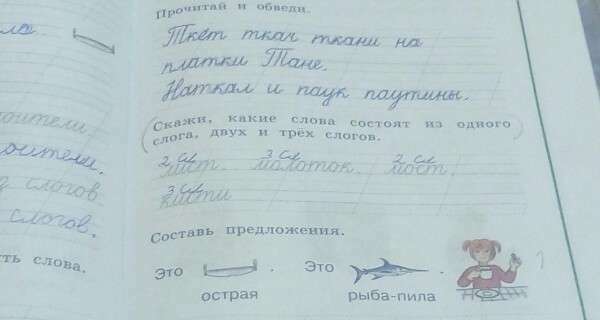 ла.
Прочитай и обведи.
Ткёт ткач ткани на
платки Тане.
Наткал и паук паутины.
Скажи, какие слова состоят из одного
слога, двух и трёх слогов.
2 сл 3 сл 2 сл
лист. молоток. мост.
3 сл
кисти
оители
оители.
з слогов.
слогов.
ть слова.
Составь предложения.
Это . Это .
острая рыба-пила